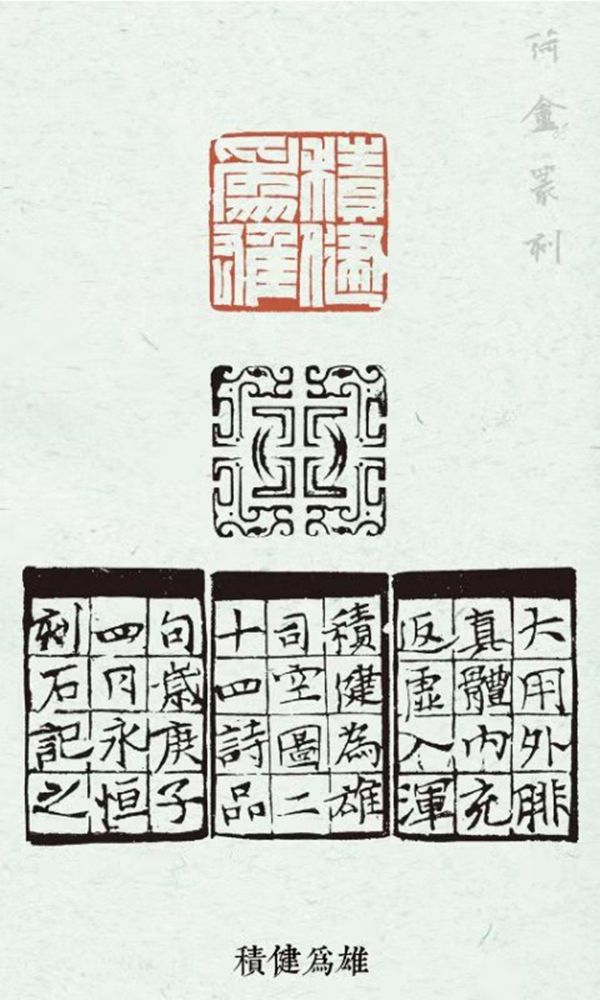 荷盦篆刻
積健
爲雄
大用外腓
真體內充
返虛入渾
積健為雄
司空圖二
十四詩品
句歲庚子
四月永恒
刻石記之
積健爲雄